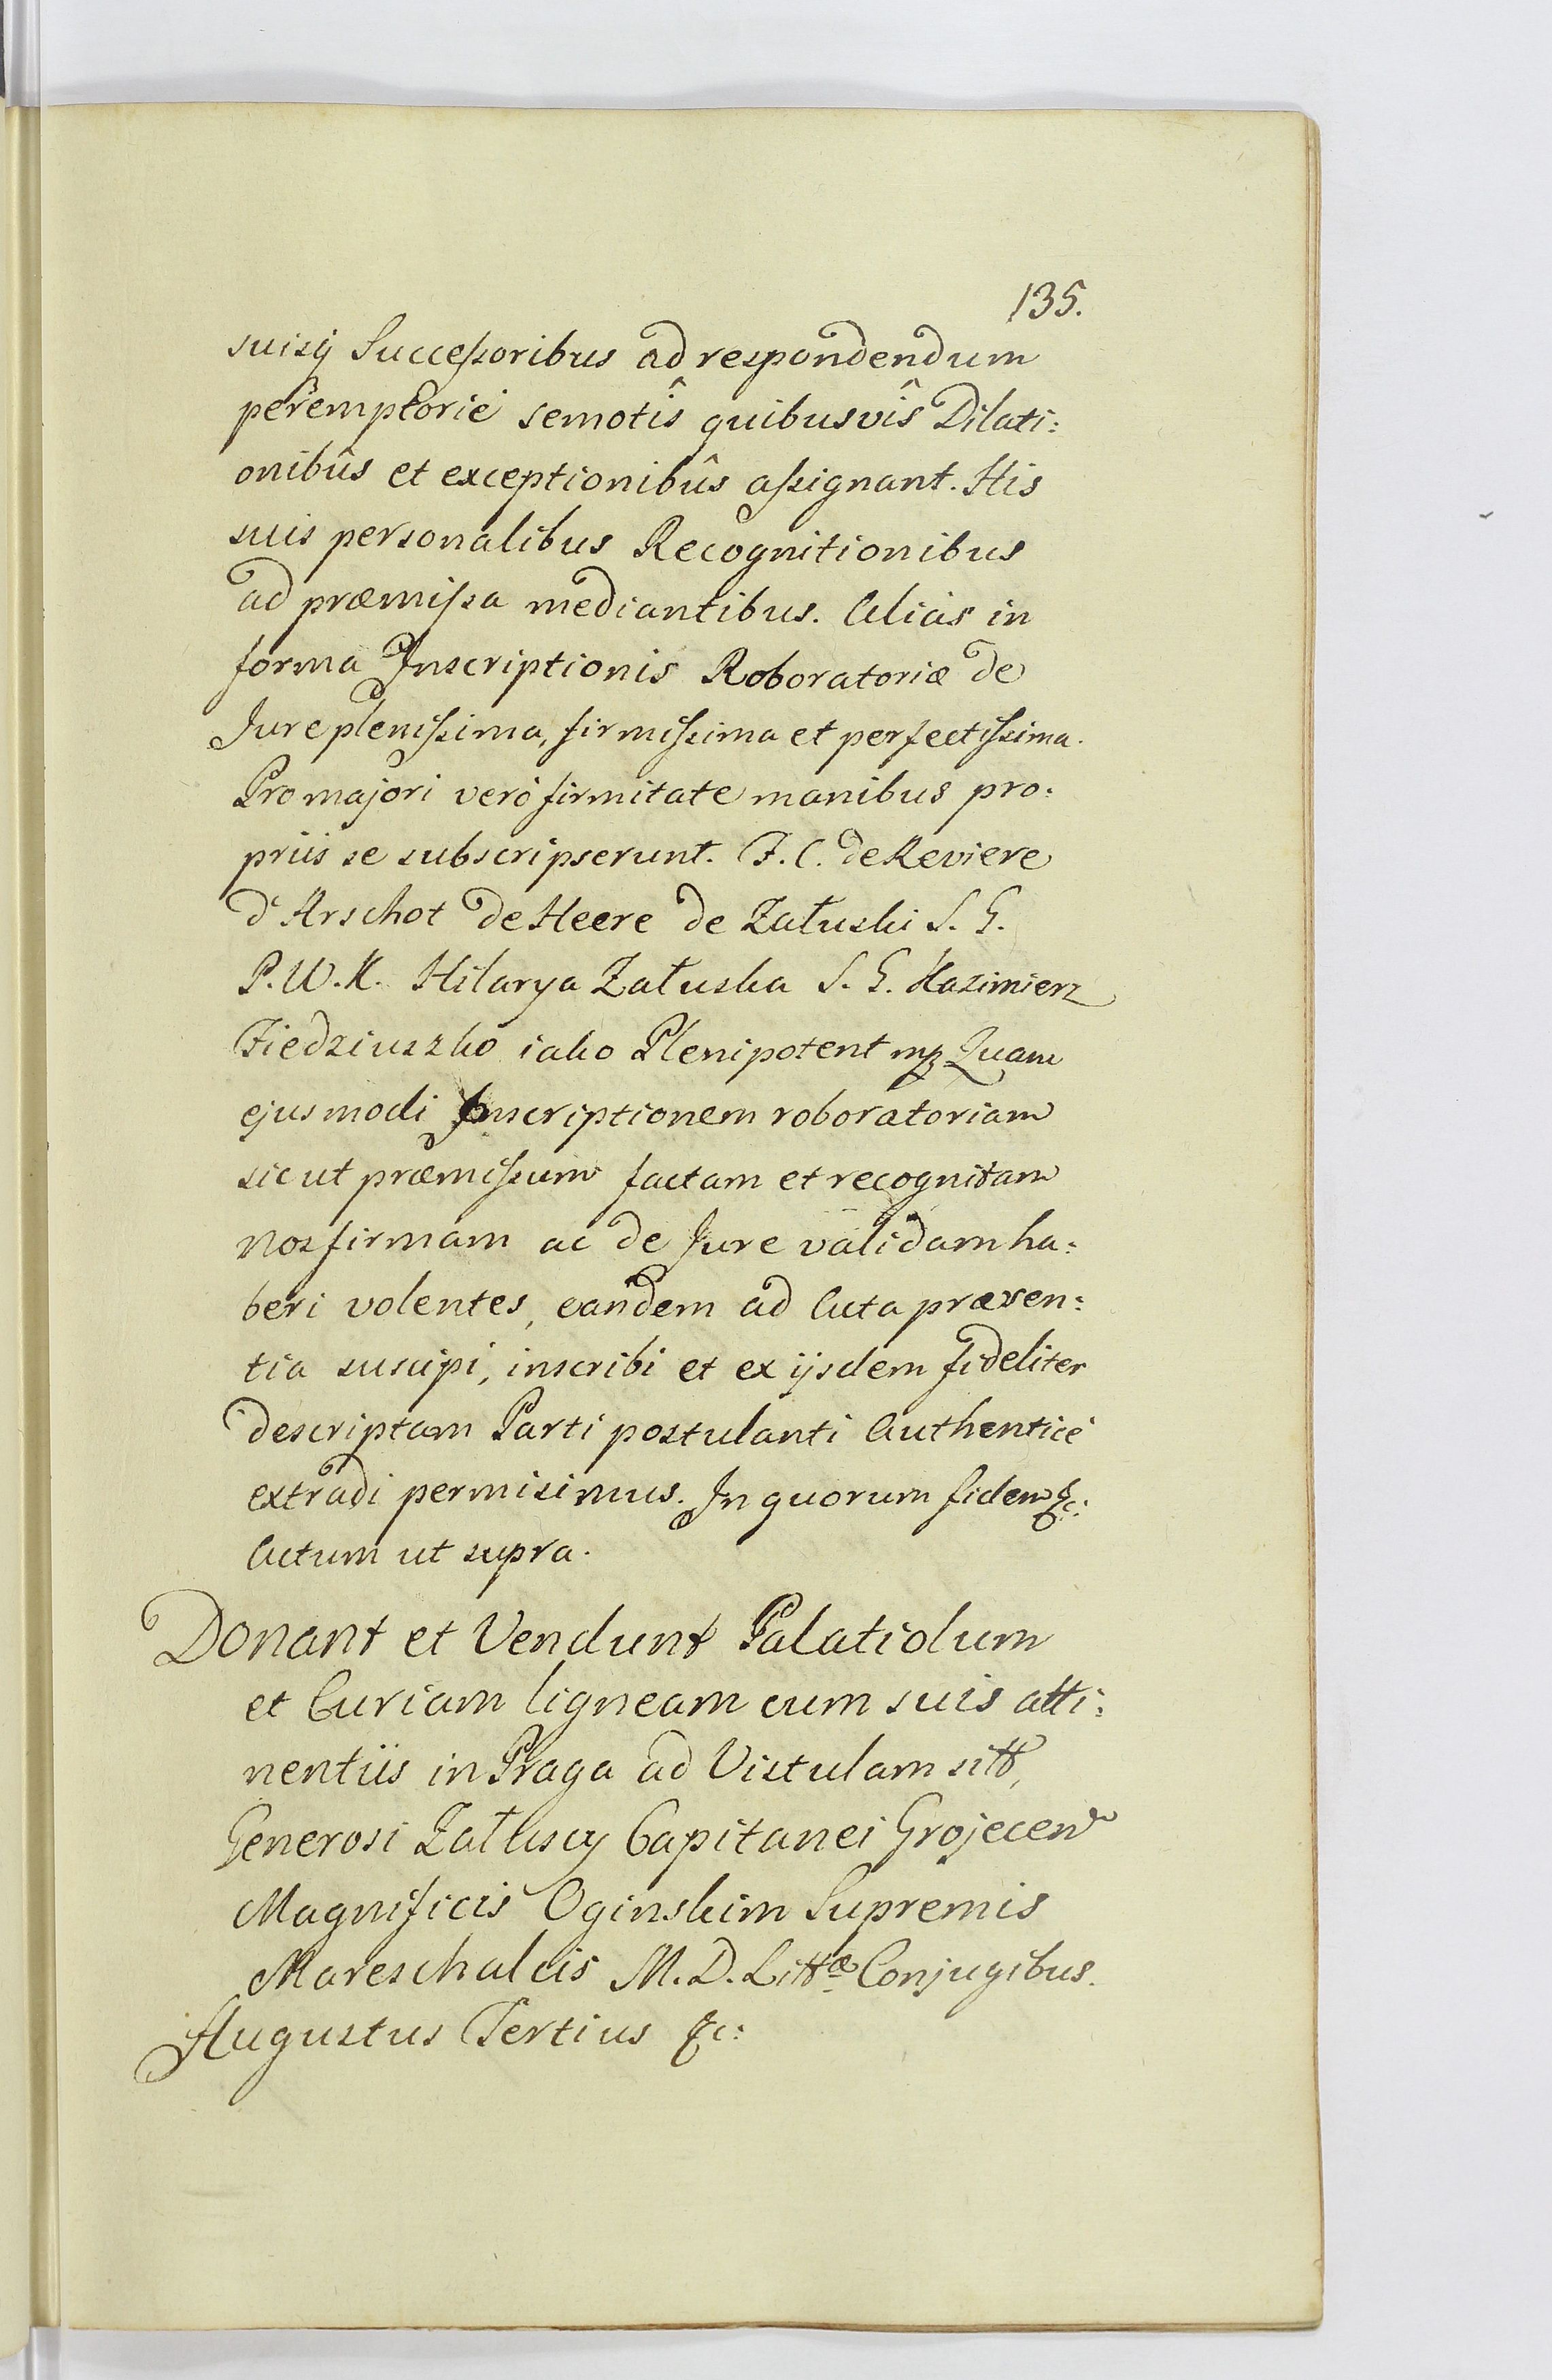 135.
suisq Successoribus ad respondendum
peremptorie semotîs quibusvîs Dilati:
onibûs et exceptionibûs assignant. His
suis personalibus Recognitionibus
ad præmissa mediantibus. Aliàs in
forma Inscriptionis Roboratoriæ de
Jure plenissima, firmissima et perfectissima.
Pro majori verò firmitate manibus pro:
priis se subscripserunt. F. C. de Reviere
d'Arschot de Heere de Załuski S. G.
P. W. K. Hilarya Załuska S. G. Kazimierz
Fiedziuszko iako Plenipotent mp Quam
ejusmodi Inscriptionem roboratoriam
sicut præmissum factam et recognitam
Nos firmam ac de Jure validam ha:
beri volentes, eandem ad Acta præsen:
tia suscipi, inscribi et ex ijsdem fideliter
descriptam Parti postulanti Authenticè
extradi permisimus. In quorum fidem &c:
Actum ut supra.
Donant et Vendunt Palatiolum
et Curiam ligneam cum suis atti:
nentiis in Praga ad Vistulam sitt,
Generosi Załuscy Capitanei Grojecen
Magnificis Oginskim Supremis
Mareschalcis M. D. Littæ Conjugibus.
Augustus Tertius &c: